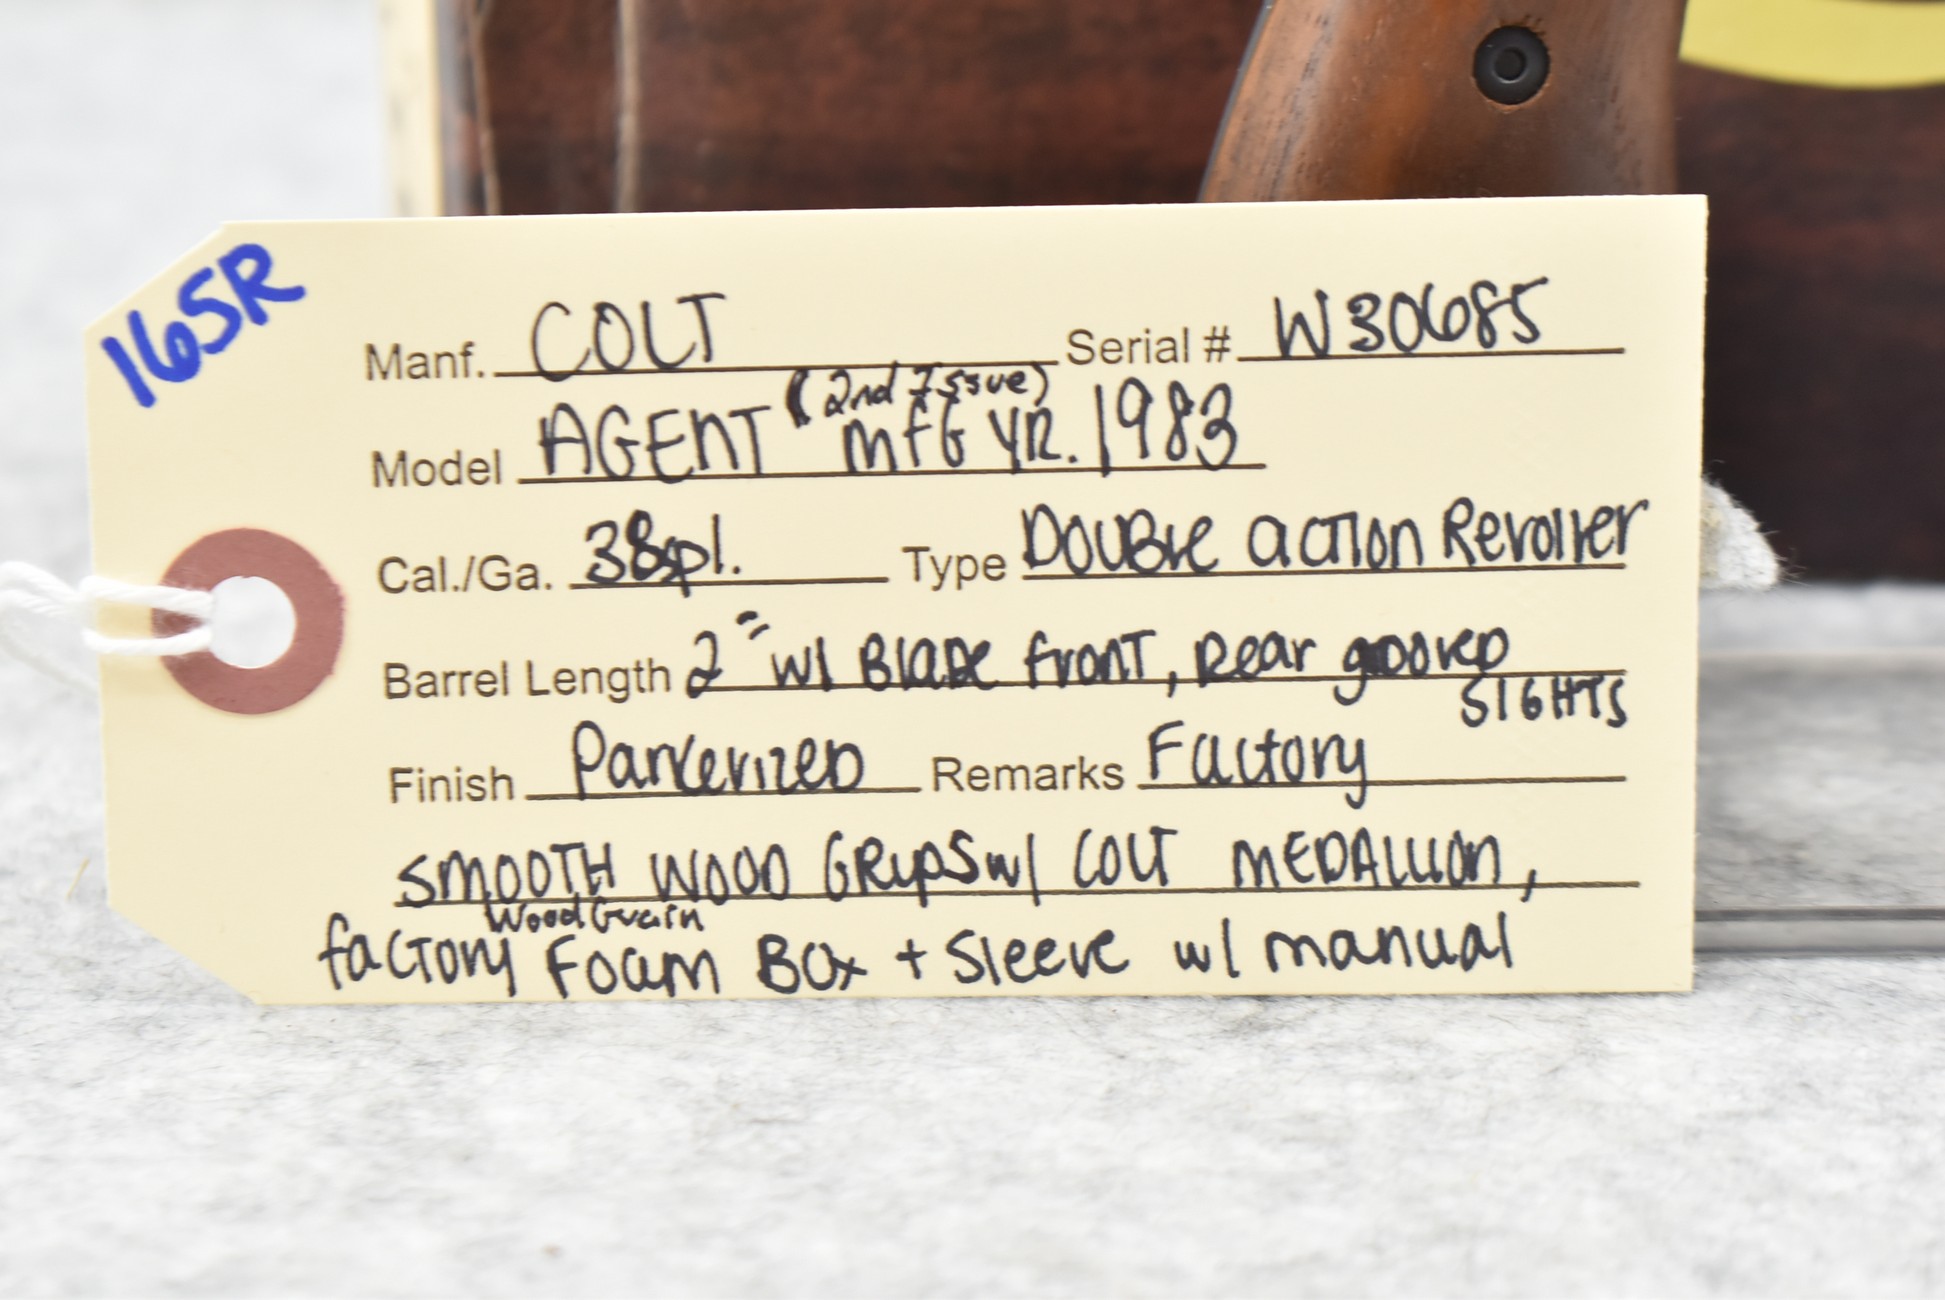 165R
Manf. COLT Serial # W30685
(2nd Issue)
Model AGENT MFG YR. 1983
Cal./Ga. 38spl. Type Double action Revolver
Barrel Length 2" w/ Blade front, Rear grooved
SIGHTS
Finish Parkerized Remarks Factory
SMOOTH WOOD GRIPS w/ COLT MEDALLION,
Wood Grain
factory Foam Box + Sleeve w/ manual